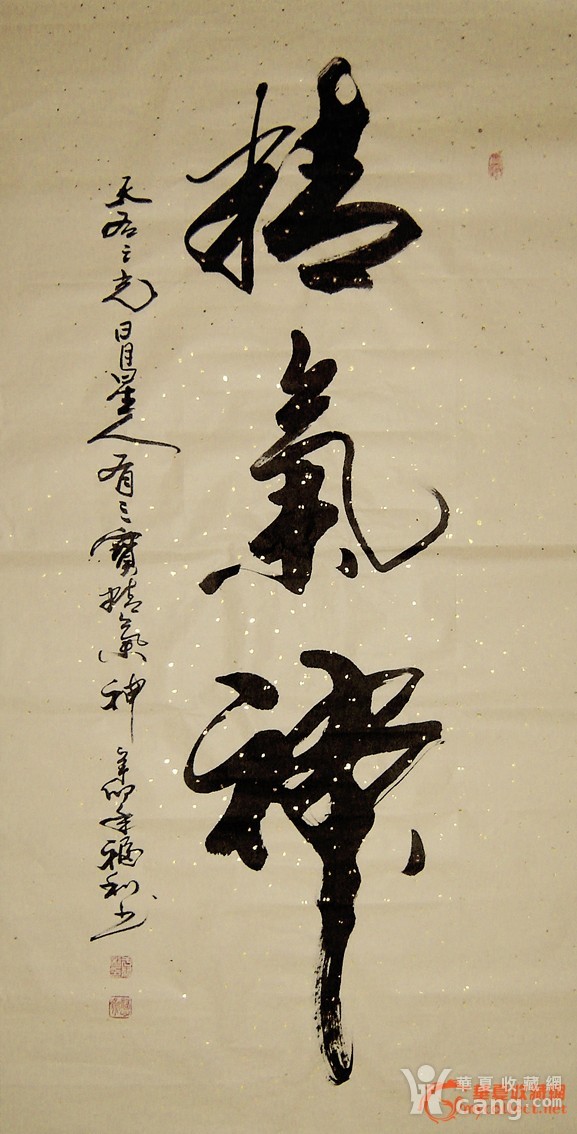 精氣神
天有三光日月星人有三寶精氣神 辛卯年福利书
華夏收藏網
cang.com